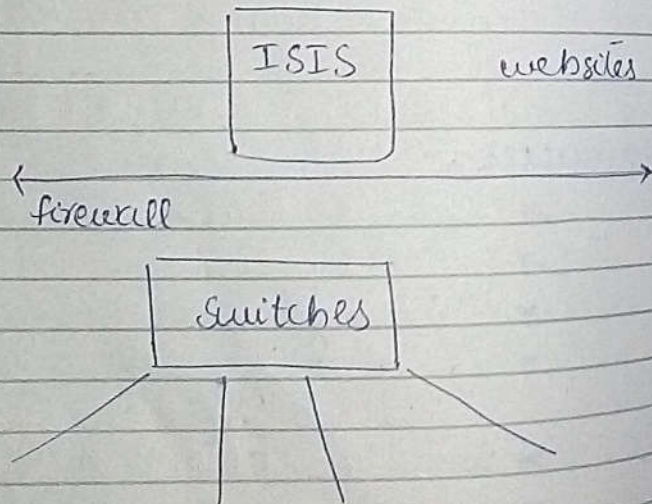 ISIS
websites
firewall
switches